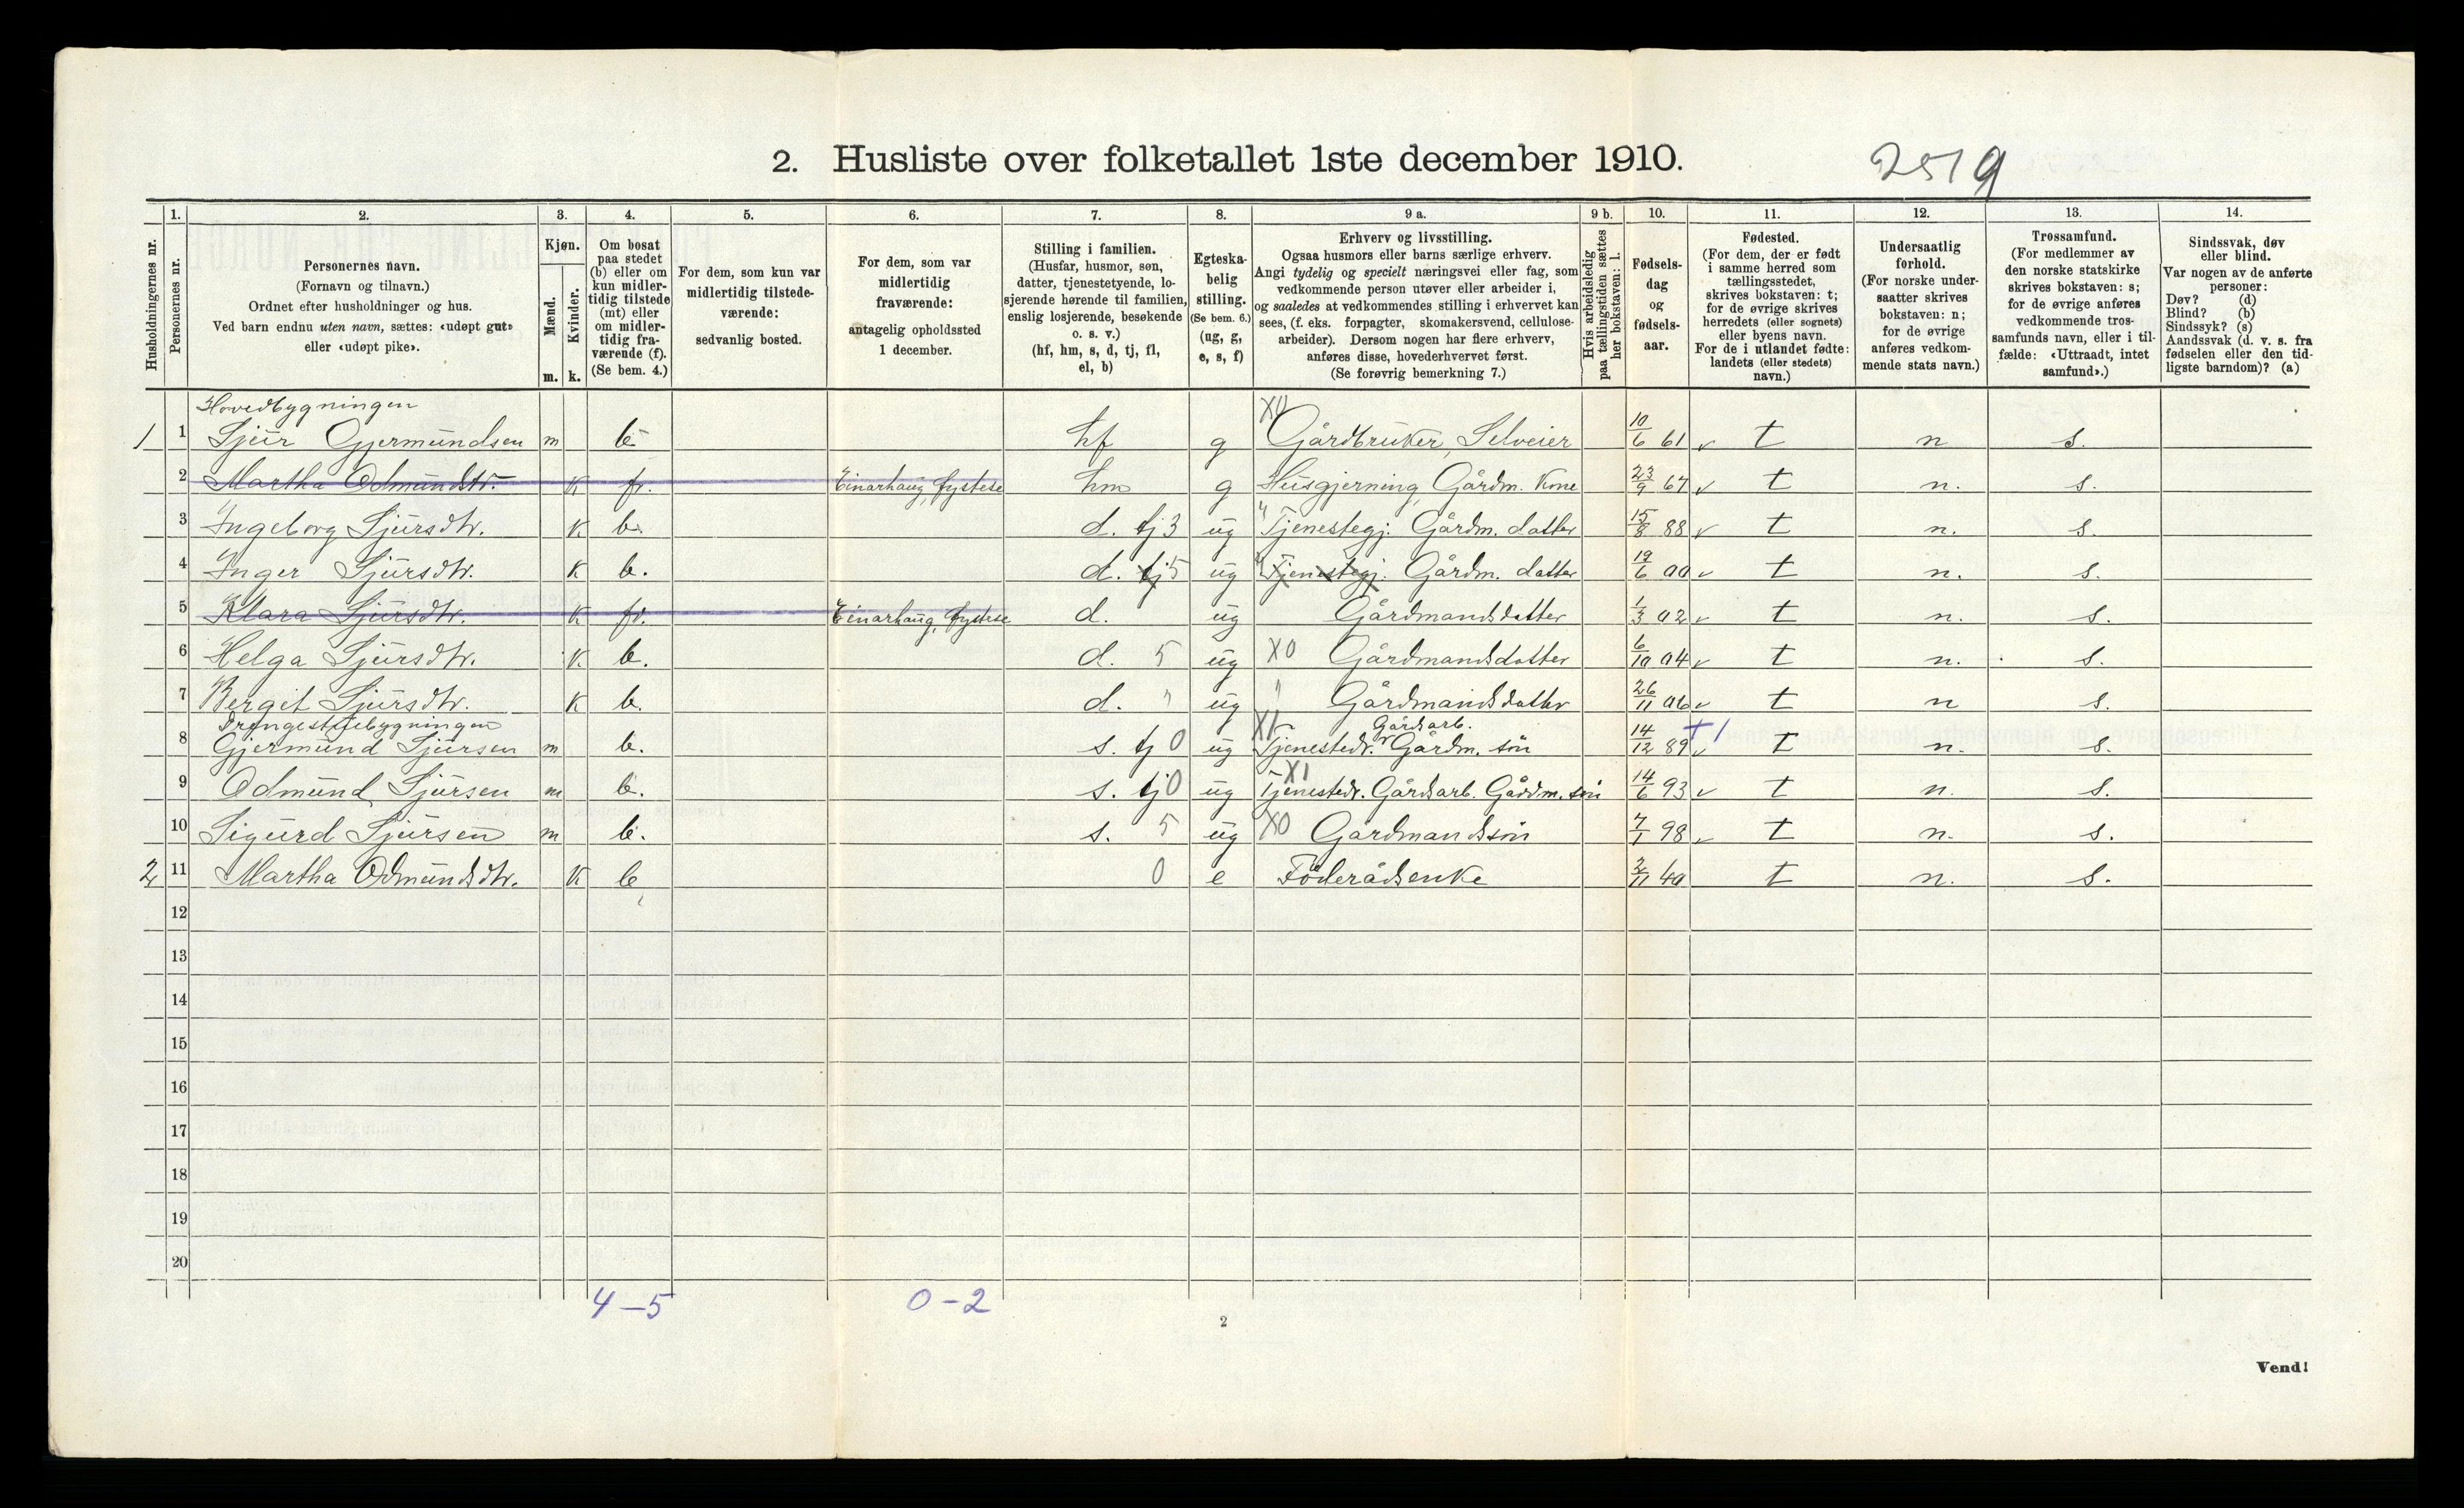 2. Husliste over folketallet 1ste december 1910.
2519
1. 2. 3. 4. 5. 6. 7. 8. 9 a. 9 b. 10. 11. 12. 13. 14.
Husholdningernes nr.
Personernes nr.
Personernes navn.
(Fornavn og tilnavn.)
Ordnet efter husholdninger og hus.
Ved barn endnu uten navn, sættes: «udøpt gut»
eller «udøpt pike».
Kjøn.
Mænd.
Kvinder.
m. k.
Om bosat
paa stedet
(b) eller om
kun midler-
tidig tilstede
(mt) eller
om midler-
tidig fra-
værende (f).
(Se bem. 4.)
For dem, som kun var
midlertidig tilstede-
værende:
sedvanlig bosted.
For dem, som var
midlertidig
fraværende:
antagelig opholdssted
1 december.
Stilling i familien.
(Husfar, husmor, søn,
datter, tjenestetyende, lo-
sjerende hørende til familien,
enslig losjerende, besøkende
o. s. v.)
(hf, hm, s, d, tj, fl,
el, b)
Egteska-
belig
stilling.
(Se bem. 6.)
(ug, g,
e, s, f)
Erhverv og livsstilling.
Ogsaa husmors eller barns særlige erhverv.
Angi tydelig og specielt næringsvei eller fag, som
vedkommende person utøver eller arbeider i,
og saaledes at vedkommendes stilling i erhvervet kan
sees, (f. eks. forpagter, skomakersvend, cellulose-
arbeider). Dersom nogen har flere erhverv,
anføres disse, hovederhvervet først.
(Se forøvrig bemerkning 7.)
Hvis arbeidsledig
paa tællingstiden sættes
her bokstaven: l.
Fødsels-
dag
og
fødsels-
aar.
Fødested.
(For dem, der er født
i samme herred som
tællingsstedet,
skrives bokstaven: t;
for de øvrige skrives
herredets (eller sognets)
eller byens navn.
For de i utlandet fødte:
landets (eller stedets)
navn.)
Undersaatlig
forhold.
(For norske under-
saatter skrives
bokstaven: n;
for de øvrige
anføres vedkom-
mende stats navn.)
Trossamfund.
(For medlemmer av
den norske statskirke
skrives bokstaven: s;
for de øvrige anføres
vedkommende tros-
samfunds navn, eller i til-
fælde: «Uttraadt, intet
samfund».)
Sindssvak, døv
eller blind.
Var nogen av de anførte
personer:
Døv? (d)
Blind? (b)
Sindssyk? (s)
Aandssvak (d. v. s. fra
fødselen eller den tid-
ligste barndom)? (a)
Hovedbygningen
1 1 Sjur Gjermundsen m b hf g X0 Gårdbruker, Selveier 10/6 61 t n s.
2 Martha Odmundsdtr. K fr. Einarhaug, Fystese hm g Husgjerning, Gårdm. Kone 23/9 67 t n. s.
3 Ingeborg Sjursdtr. K b. d. tj 3 ug " Tjenestegj. Gårdm. datter 15/8 88 t n. s.
4 Inger Sjursdtr. K b. d. tj 5 ug " Tjenestegj. Gårdm. datter 19/6 00 t n. s.
5 Klara Sjursdtr. K fr. Einarhaug, Fystese d. ug Gårdmandsdatter 1/3 02 t n. s.
6 Helga Sjursdtr. K b. d. 5 ug X0 Gårdmandsdatter 6/10 04 t n. s.
7 Bergit Sjursdtr. K b. d. " ug " Gårdmandsdatter 26/11 06 t n s.
Drengestuebygningen
8 Gjermund Sjursen m b. s. tj 0 ug X1 Tjenestedr. Gårdsarb. Gårdm. sön 14/12 89 +1 t n. s.
9 Odmund Sjursen m b. s. tj 0 ug X1 Tjenestedr. Gårdsarb. Gårdm. sön 14/6 93 t n. s.
10 Sigurd Sjursen m b. s. 5 ug X0 Gårdmandssön 7/1 98 t n. s.
2 11 Martha Odmundsdtr. K b 0 e Föderådsenke 2/11 40 t n. s.
12
13
14
15
16
17
18
19
20
4-5 0-2
2
Vend!